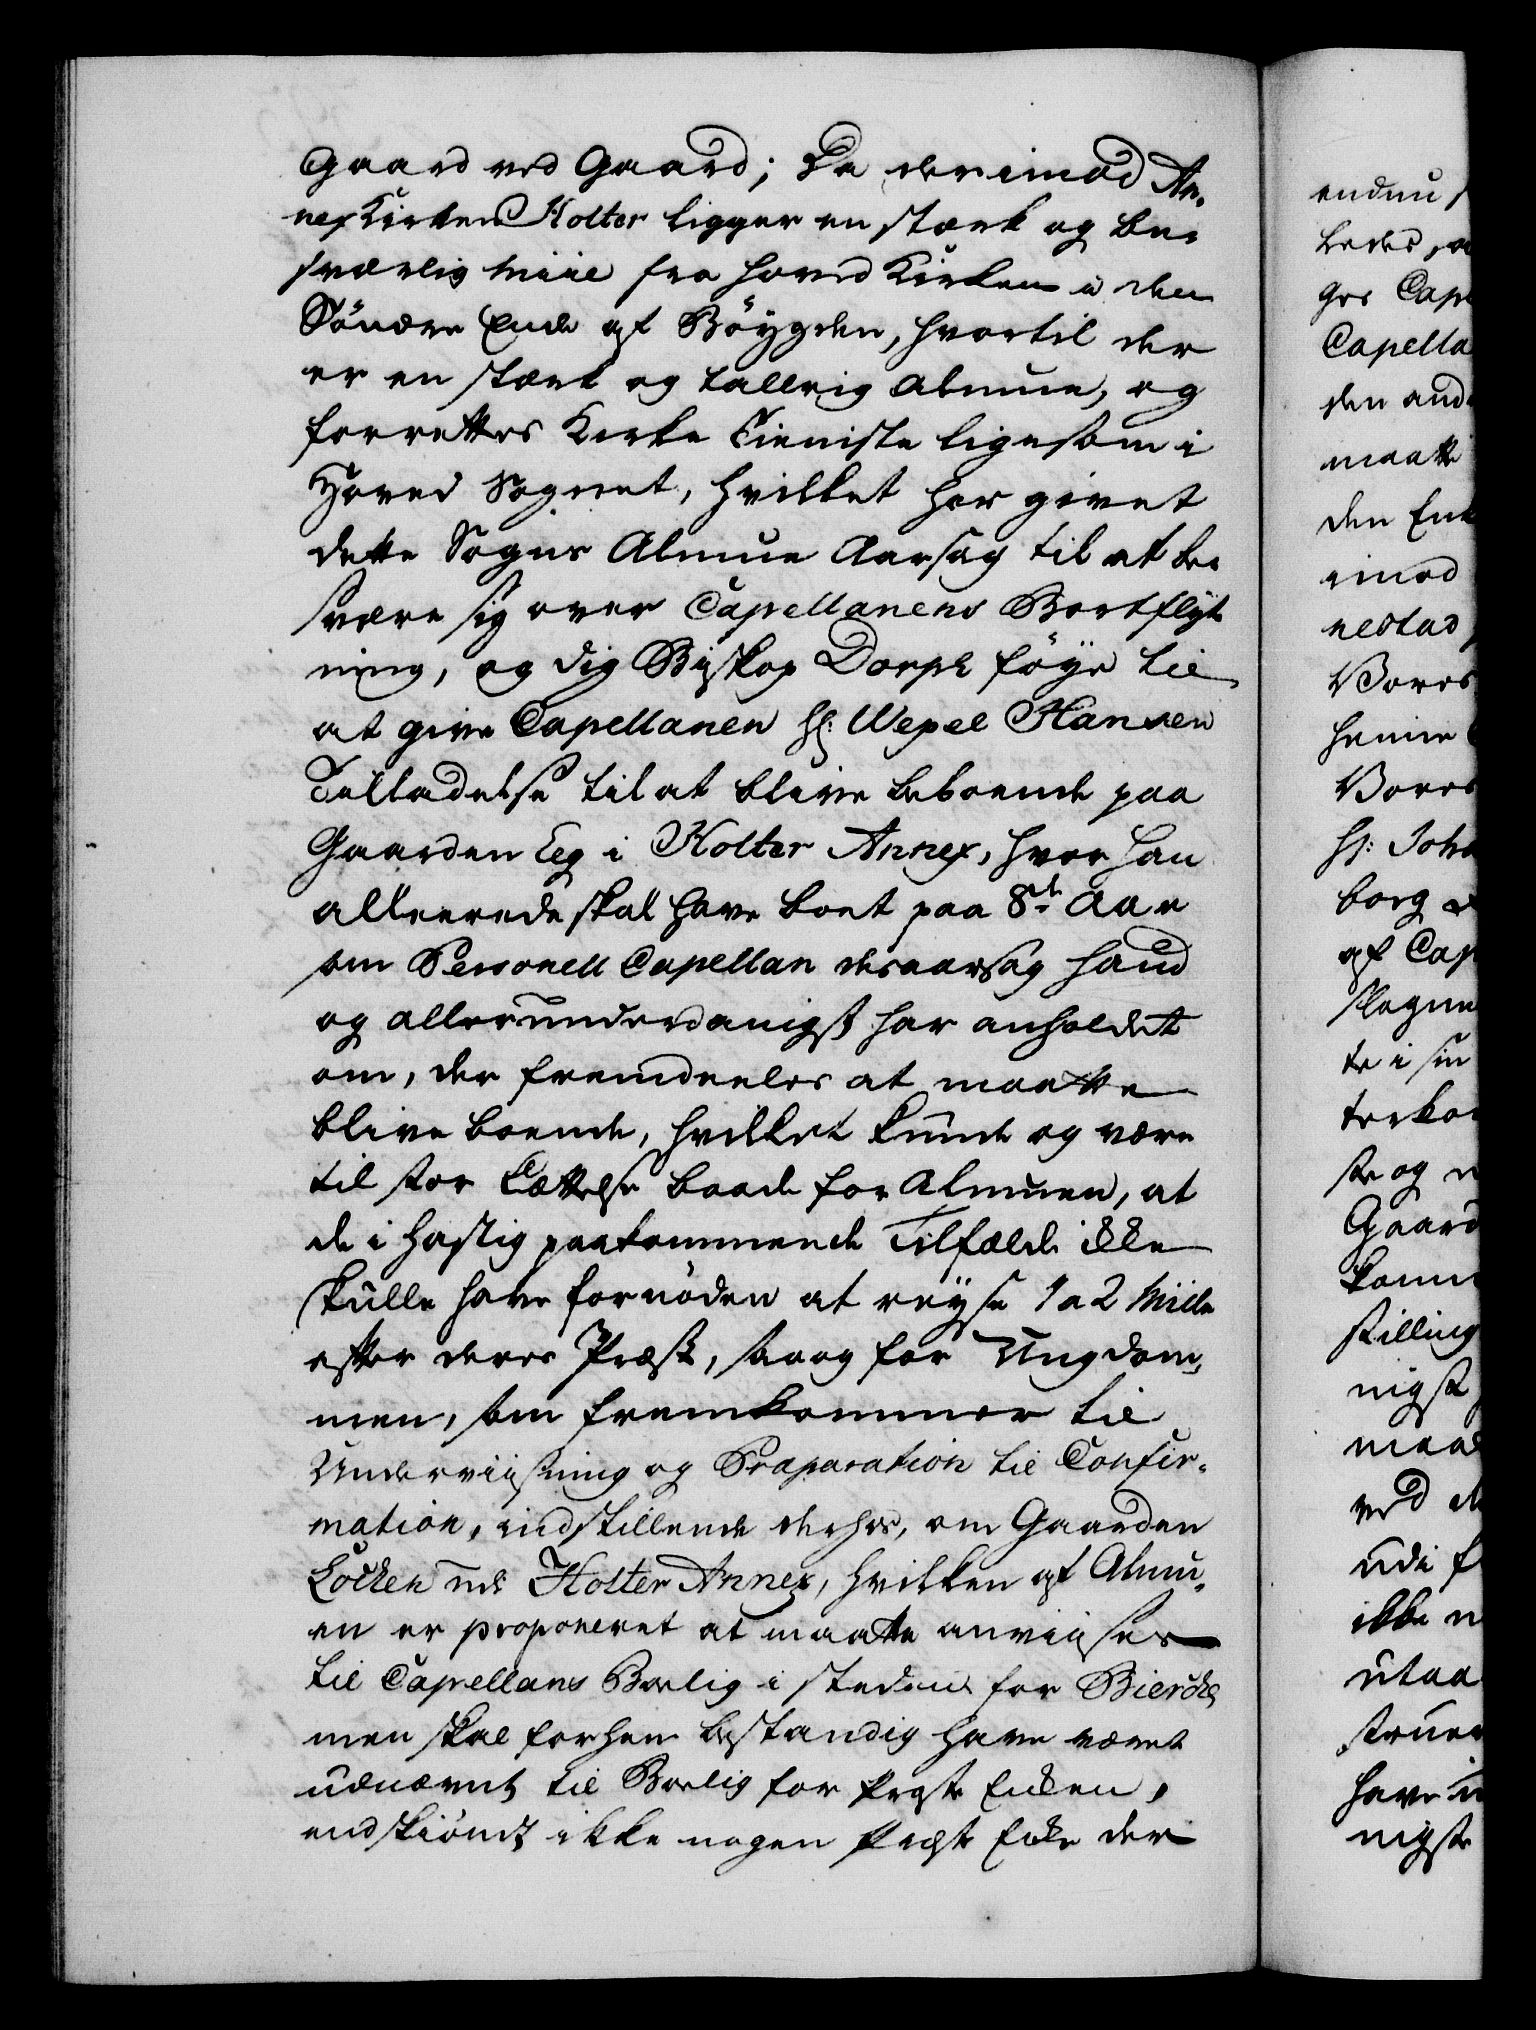 Gaard ved Gaard; Da derimod An-
nex Kirken Holter ligger en stærk og be-
sværlig Miil fra Hoved Kirken i den
Søndre Ende af Bøygden, hvortil der
er en stærk og tallrig Almue, og
forrettes Kirke Tieniste ligesom i
Hoved Sognet, hvilket har givet
dette Sogns Almue Aarsag til at be-
svære sig over Capellanens Bortflyt-
ning, og dig Biskop Dorph føye til
at give Capellanen Hr: Wepel Hansen
Tilladelse til at blive beboende paa
Gaarden Eeg i Holter Annex, hvor han
allereede skal have boet paa 8de Aar
som Personell Capellan desaarsag hand
og allerunderdanigst har anholdet
om, der fremdeeles at maatte
blive boende, hvilket kunde og være
til stor Lættelse baade for Almuen, at
de i hastig paakommende Tilfælde ikke
skulle have fornøden at reyse 1 a 2 Miile
efter deres Præst, saa og for Ungdom-
men, som fremkommer til
Underviisning og Præparation til Confir-
mation, indstillende derhos, om Gaarden
Löcken udi Holter Annex, hvilken af Almu-
en er proponeret at maatte anviises
til Capellans Boelig i steden for Biercke
men skal forhen bestandig have været
udnævnt til Boelig for Præste Enken,
endskiønt ikke nogen Præste Enke der
endnu
ges Cap
Capella
den and
maatte
den Enk
imod
nestad
Vores
henne
Vores
Hr: Joha
borg
af Cap
te i sin
ste og
Gaard
stilling
nigst
maa
ved
udi f
ikke
have
nigste